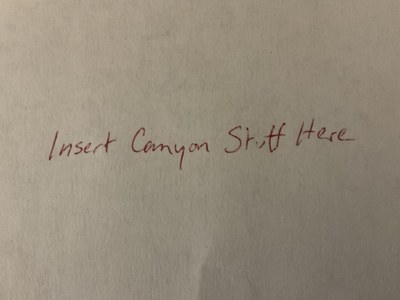 Insert Canyon Stuff Here